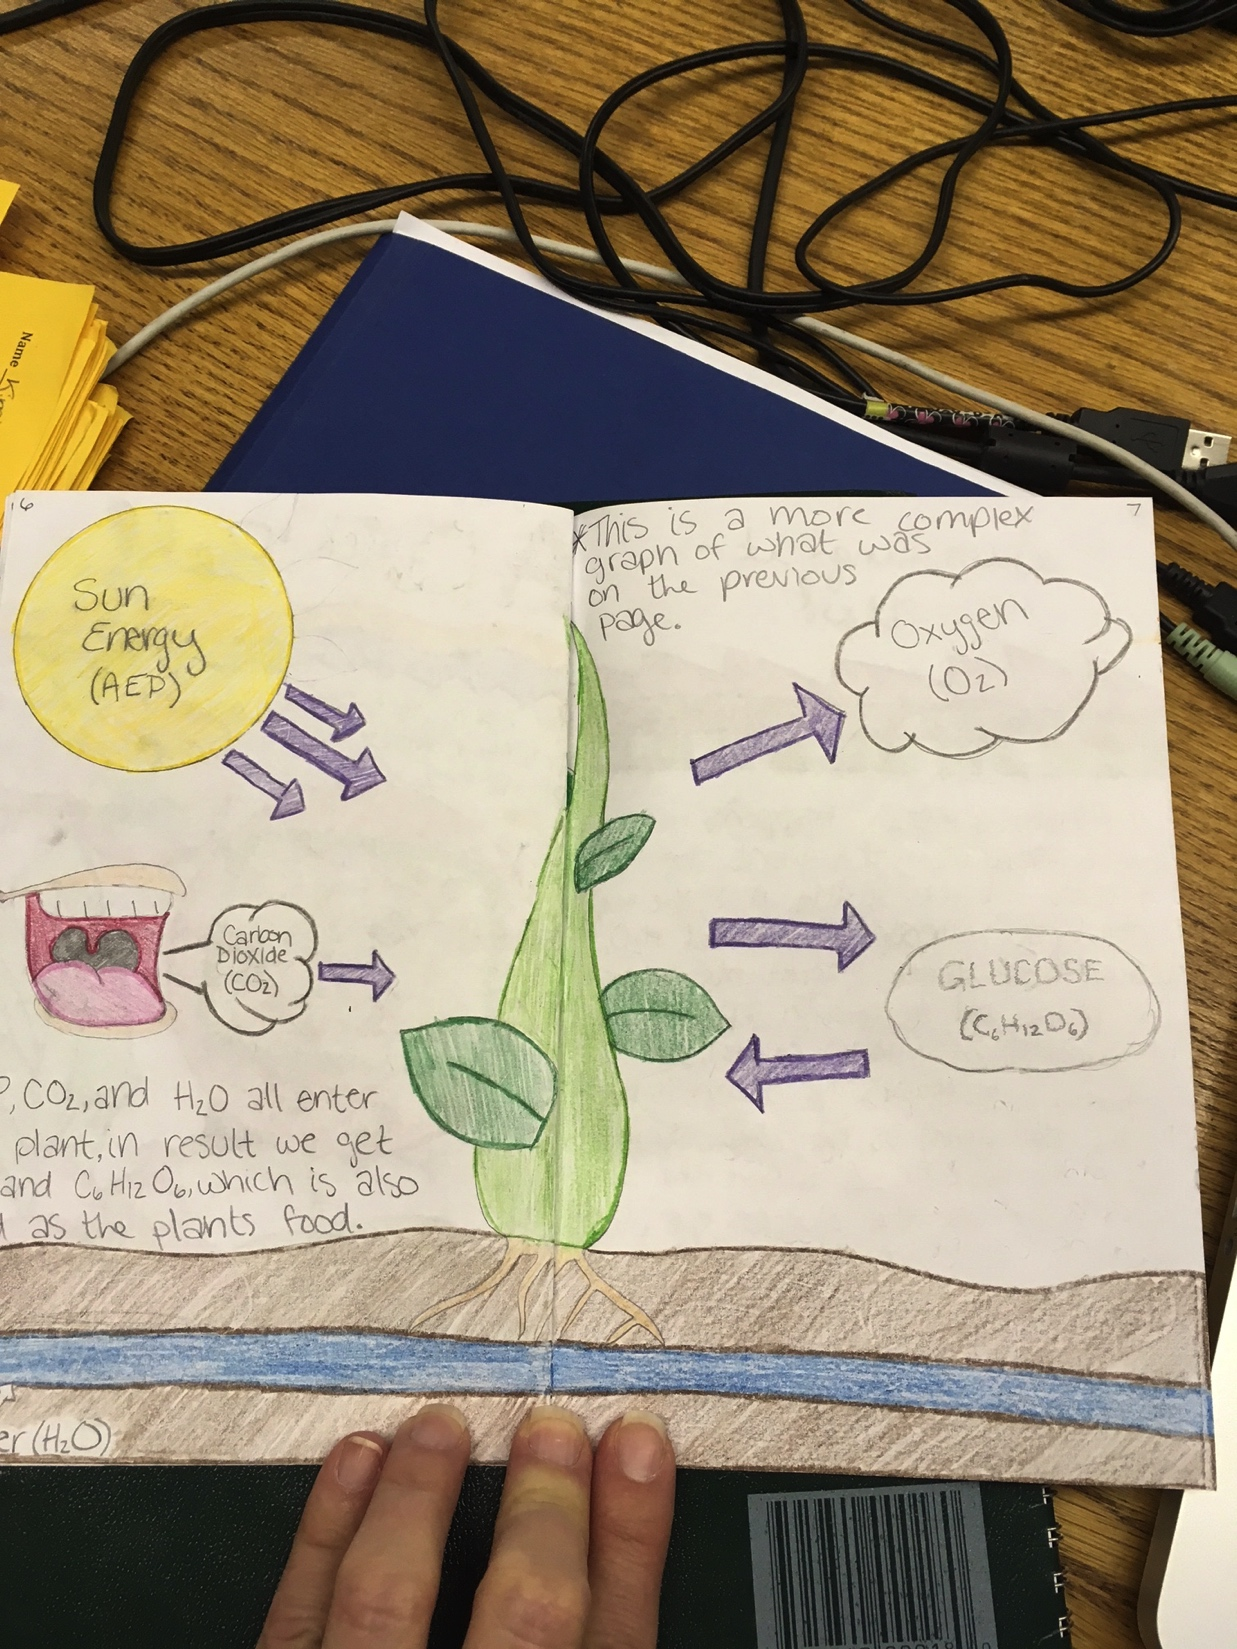 Name
6
Sun
Energy
(AEP)
Carbon
Dioxide
(CO₂)
, CO₂, and H₂O all enter
plant, in result we get
and C₆H₁₂O₆, which is also
as the plants food.
(H₂O)
7
*This is a more complex
graph of what was
on the previous
page.
Oxygen
(O₂)
GLUCOSE
(C₆H₁₂O₆)